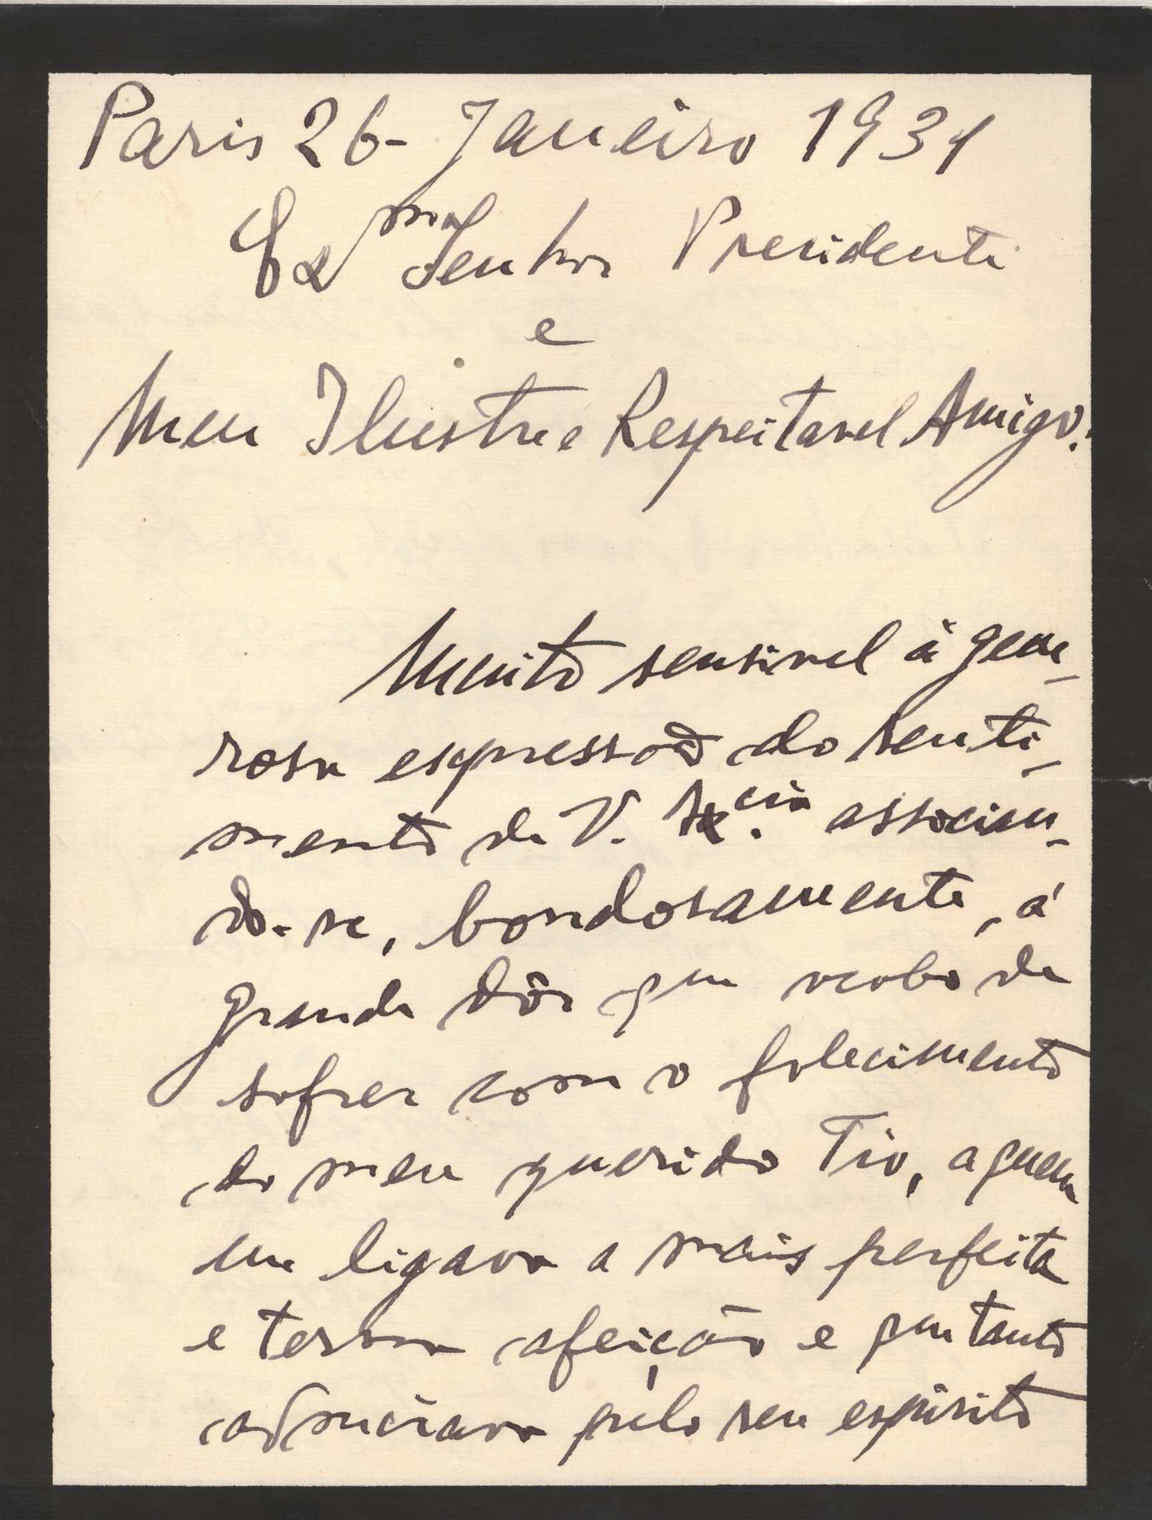 Paris 26- Janeiro 1931
Exmo Senhor Presidente
e
Meu Ilustre e Respeitavel Amigo.
Muito sensivel á gene-
rosa expressaõ do senti-
mento de V. Ex.cia associan-
do-se, bondosamente, á
grande dôr que acabo de
sofrer com o falecimento
do meu querido Tio, a quem
me ligava a mais perfeita
e terna afeição e que tanto
admirava pelo seu espirito